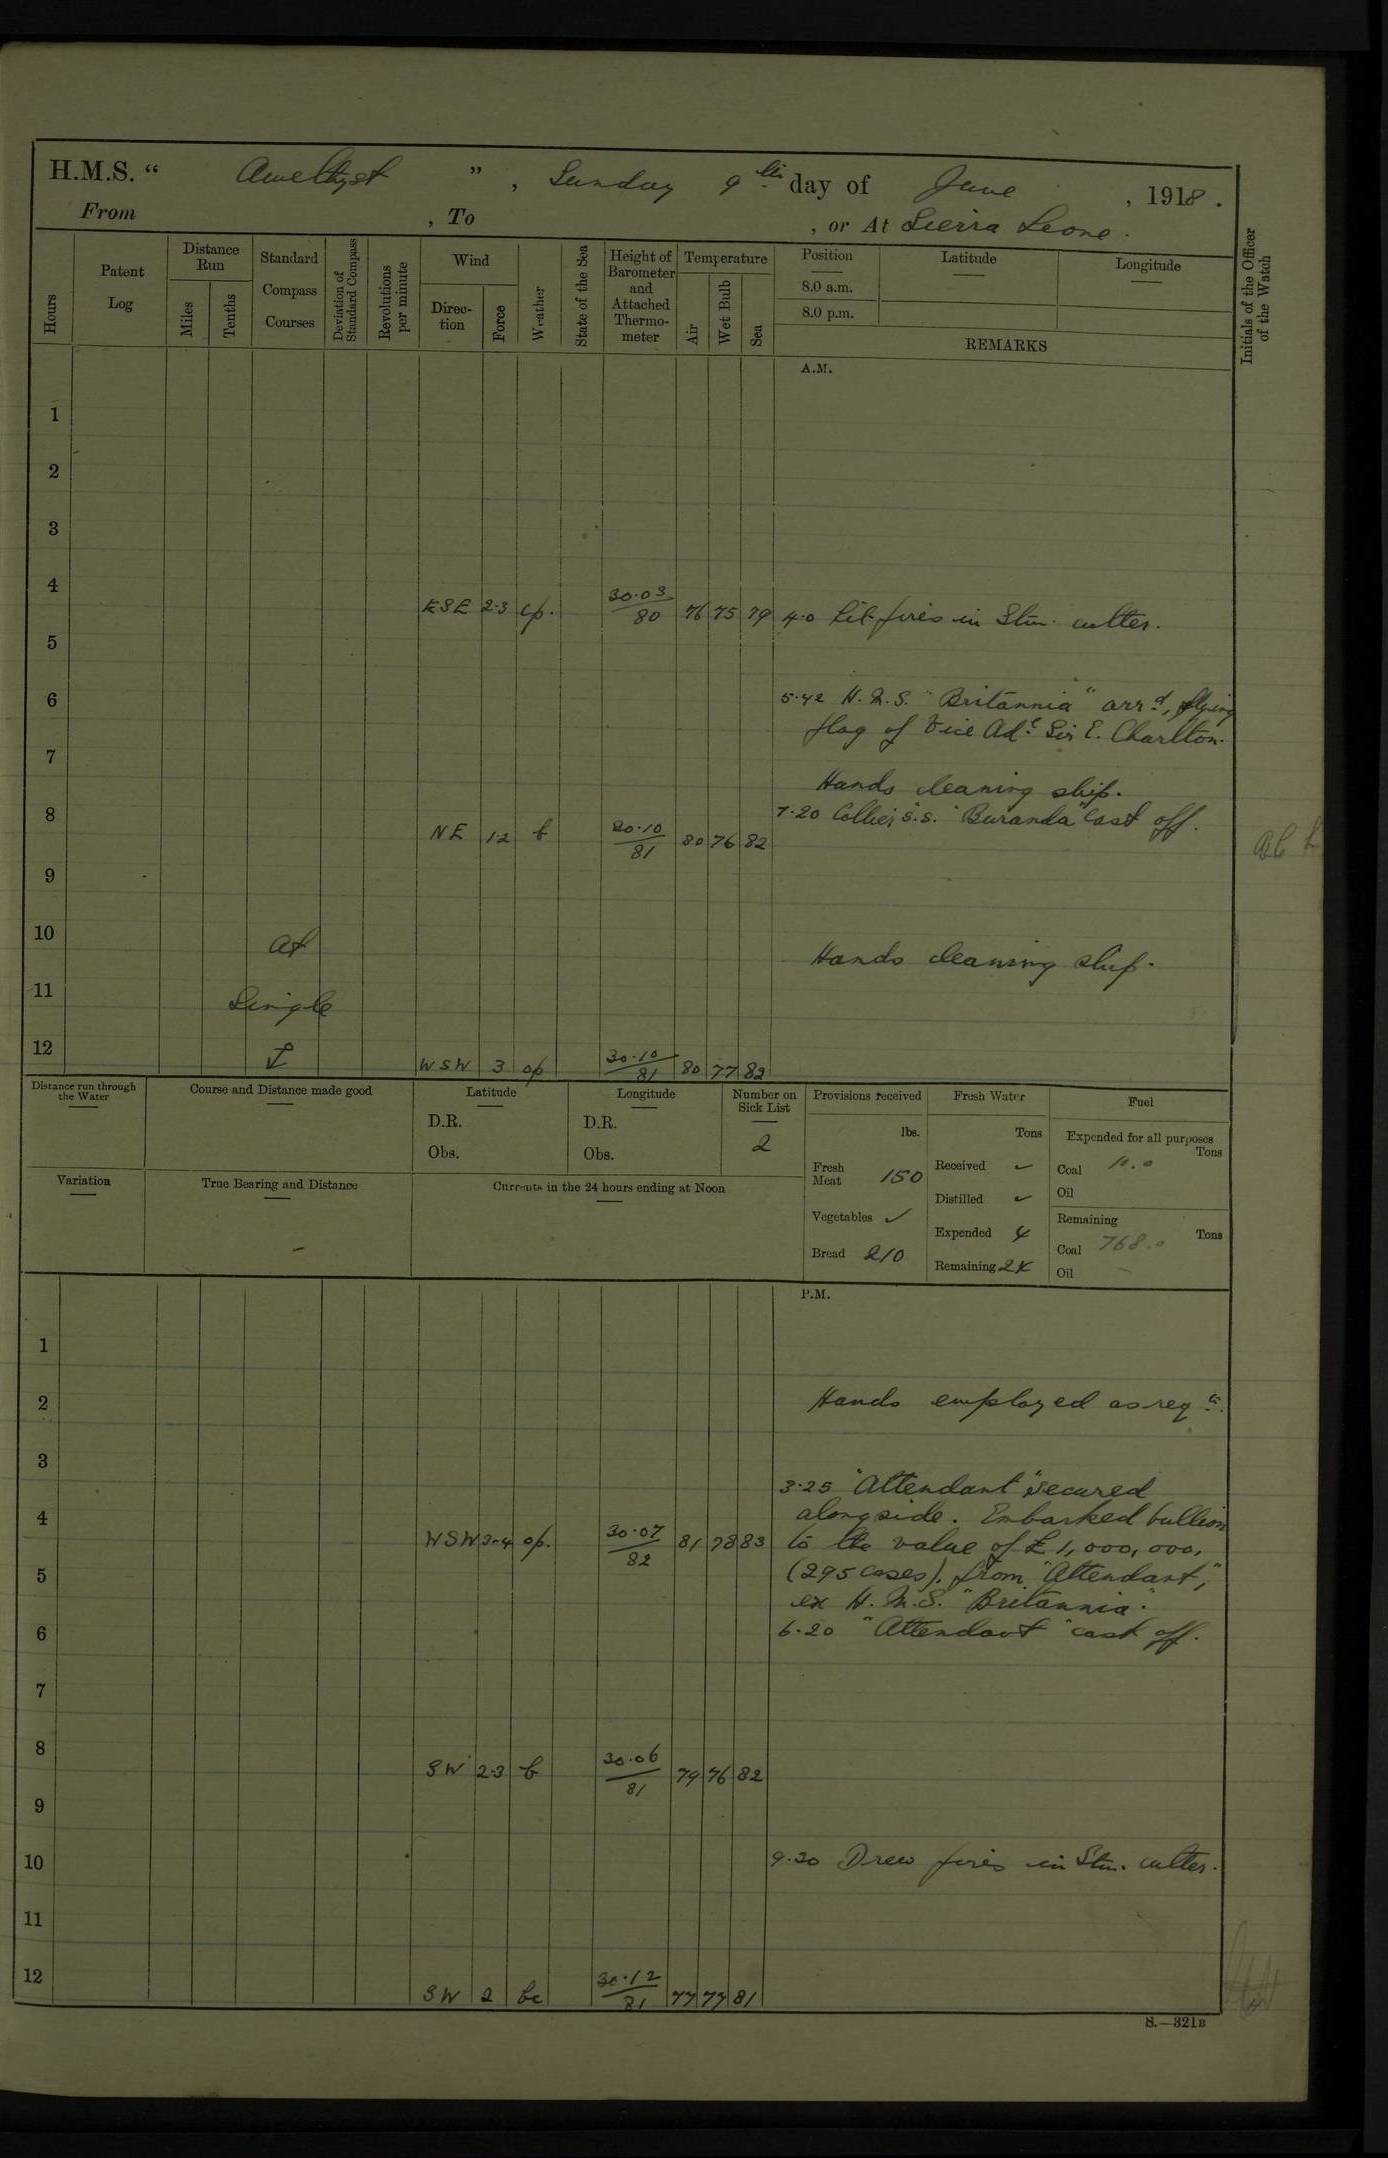 H.M.S. “ Amethyst ” , Sunday 9th day of June , 1918 .
From , To , or At Sierra Leone .
Hours
Patent Log
Distance Run
Miles
Tenths
Standard Compass Courses
Deviation of Standard Compass
Revolutions per minute
Wind
Direc- tion
Force
Weather
State of the Sea
Height of Barometer and Attached Thermo- meter
Temperature
Air
Wet Bulb
Sea
Position
8.0 a.m.
8.0 p.m.
Latitude
Longitude
REMARKS
Initials of the Officer of the Watch
A.M.
1
2
3
4
ESE 2-3 cp. 30.03/80 76 75 79 4.0 Lit fires in Stm. cutter.
5
6
5.42 H.M.S. "Britannia" arrd, flying
flag of Vice Adl Sir E. Charlton.
7
Hands cleaning ship.
8
7.20 Collier s.s. "Buranda" cast off.
NE 1-2 b 30.10/81 80 76 82
9
10
At
Hands cleaning ship.
11
Single
12
WSW 3 op 30.10/81 80 77 82
Distance run through the Water
Course and Distance made good
Latitude
D.R.
Obs.
Longitude
D.R.
Obs.
Number on Sick List
2
Provisions received
lbs.
Fresh Meat 150
Vegetables ✓
Bread 210
Fresh Water
Tons
Received ✓
Distilled ✓
Expended 4
Remaining
Fuel
Expended for all purposes
Tons
Coal 10.0
Oil
Remaining
Tons
Coal 768.0
Oil
Variation
True Bearing and Distance
Currents in the 24 hours ending at Noon
P.M.
1
2
Hands employed as req
3
3.25 "Attendant" secured
4
alongside. Embarked bullion
WSW 3-4 op. 30.07/82 81 78 83 to the value of £1,000,000,
5
(295 cases), from "Attendant,"
ex H.M.S. "Britannia".
6
6.20 "Attendant" cast off.
7
8
SW 2-3 b 30.06/81 79 76 82
9
10
9.30 Drew fires in Stm. cutter.
11
12
SW 2 bc 30.12/81 77 77 81
S.—321B